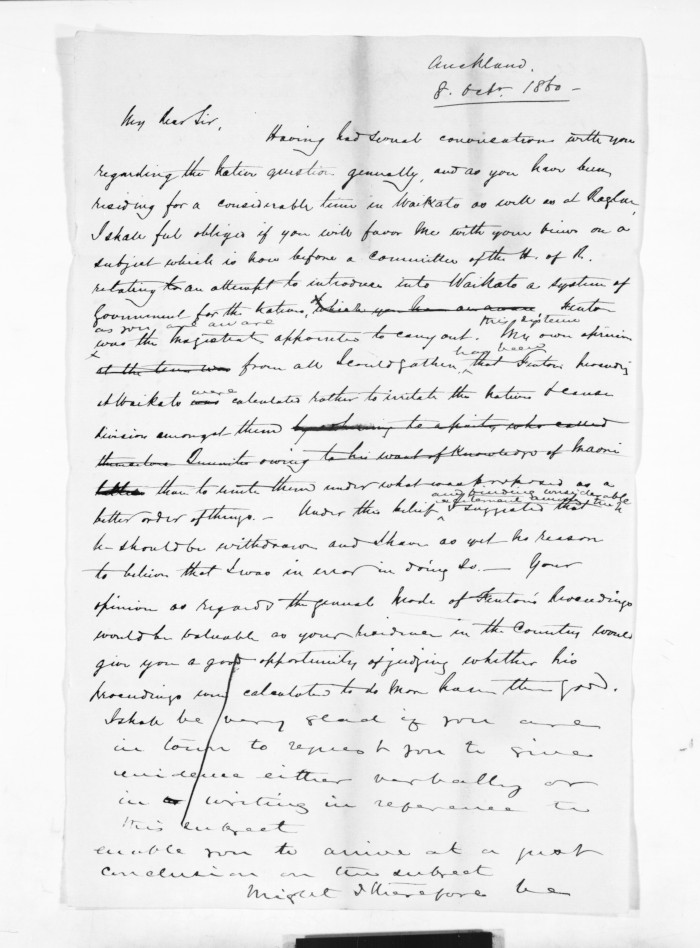 Auckland.
8. Octr. 1860 -
My Dear Sir,
Having had several conversations with you
regarding the Native question generally, and as you have been
residing for a considerable time in Waikato as well as at Raglan,
I shall feel obliged if you will favor me with your views on a
subject which is now before a Committee of the H. of R.
relating to an attempt to introduce into Waikato a system of
Government for the Natives, which you have an Fenton
as you are aware
was the Magistrate appointed to carry out. this system My own opinion
at the time was from all I could gather, have been that Fentons proceedings
at Waikato was were calculated rather to irritate the Natives & cause
division amongst them by to a party who called
themselves owing to his want of knowledge of Maori
than to unite them under what was proposed as a
better order of things. - Under this belief and finding considerable
excitement amongst them I suggested that
he should be withdrawn and I have as yet no reason
to believe that I was in error in doing so. - Your
opinion as regards the general mode of Fenton's proceedings
would be valuable as your residence in the Country would
give you a good opportunity of judging whether his
proceedings were calculated to do more harm than good.
I shall be very glad if you are
in town to request you to give
evidence either verbally or
in writing in reference to
this subject
enable you to arrive at a just
conclusion on this subject
Might I therefore be